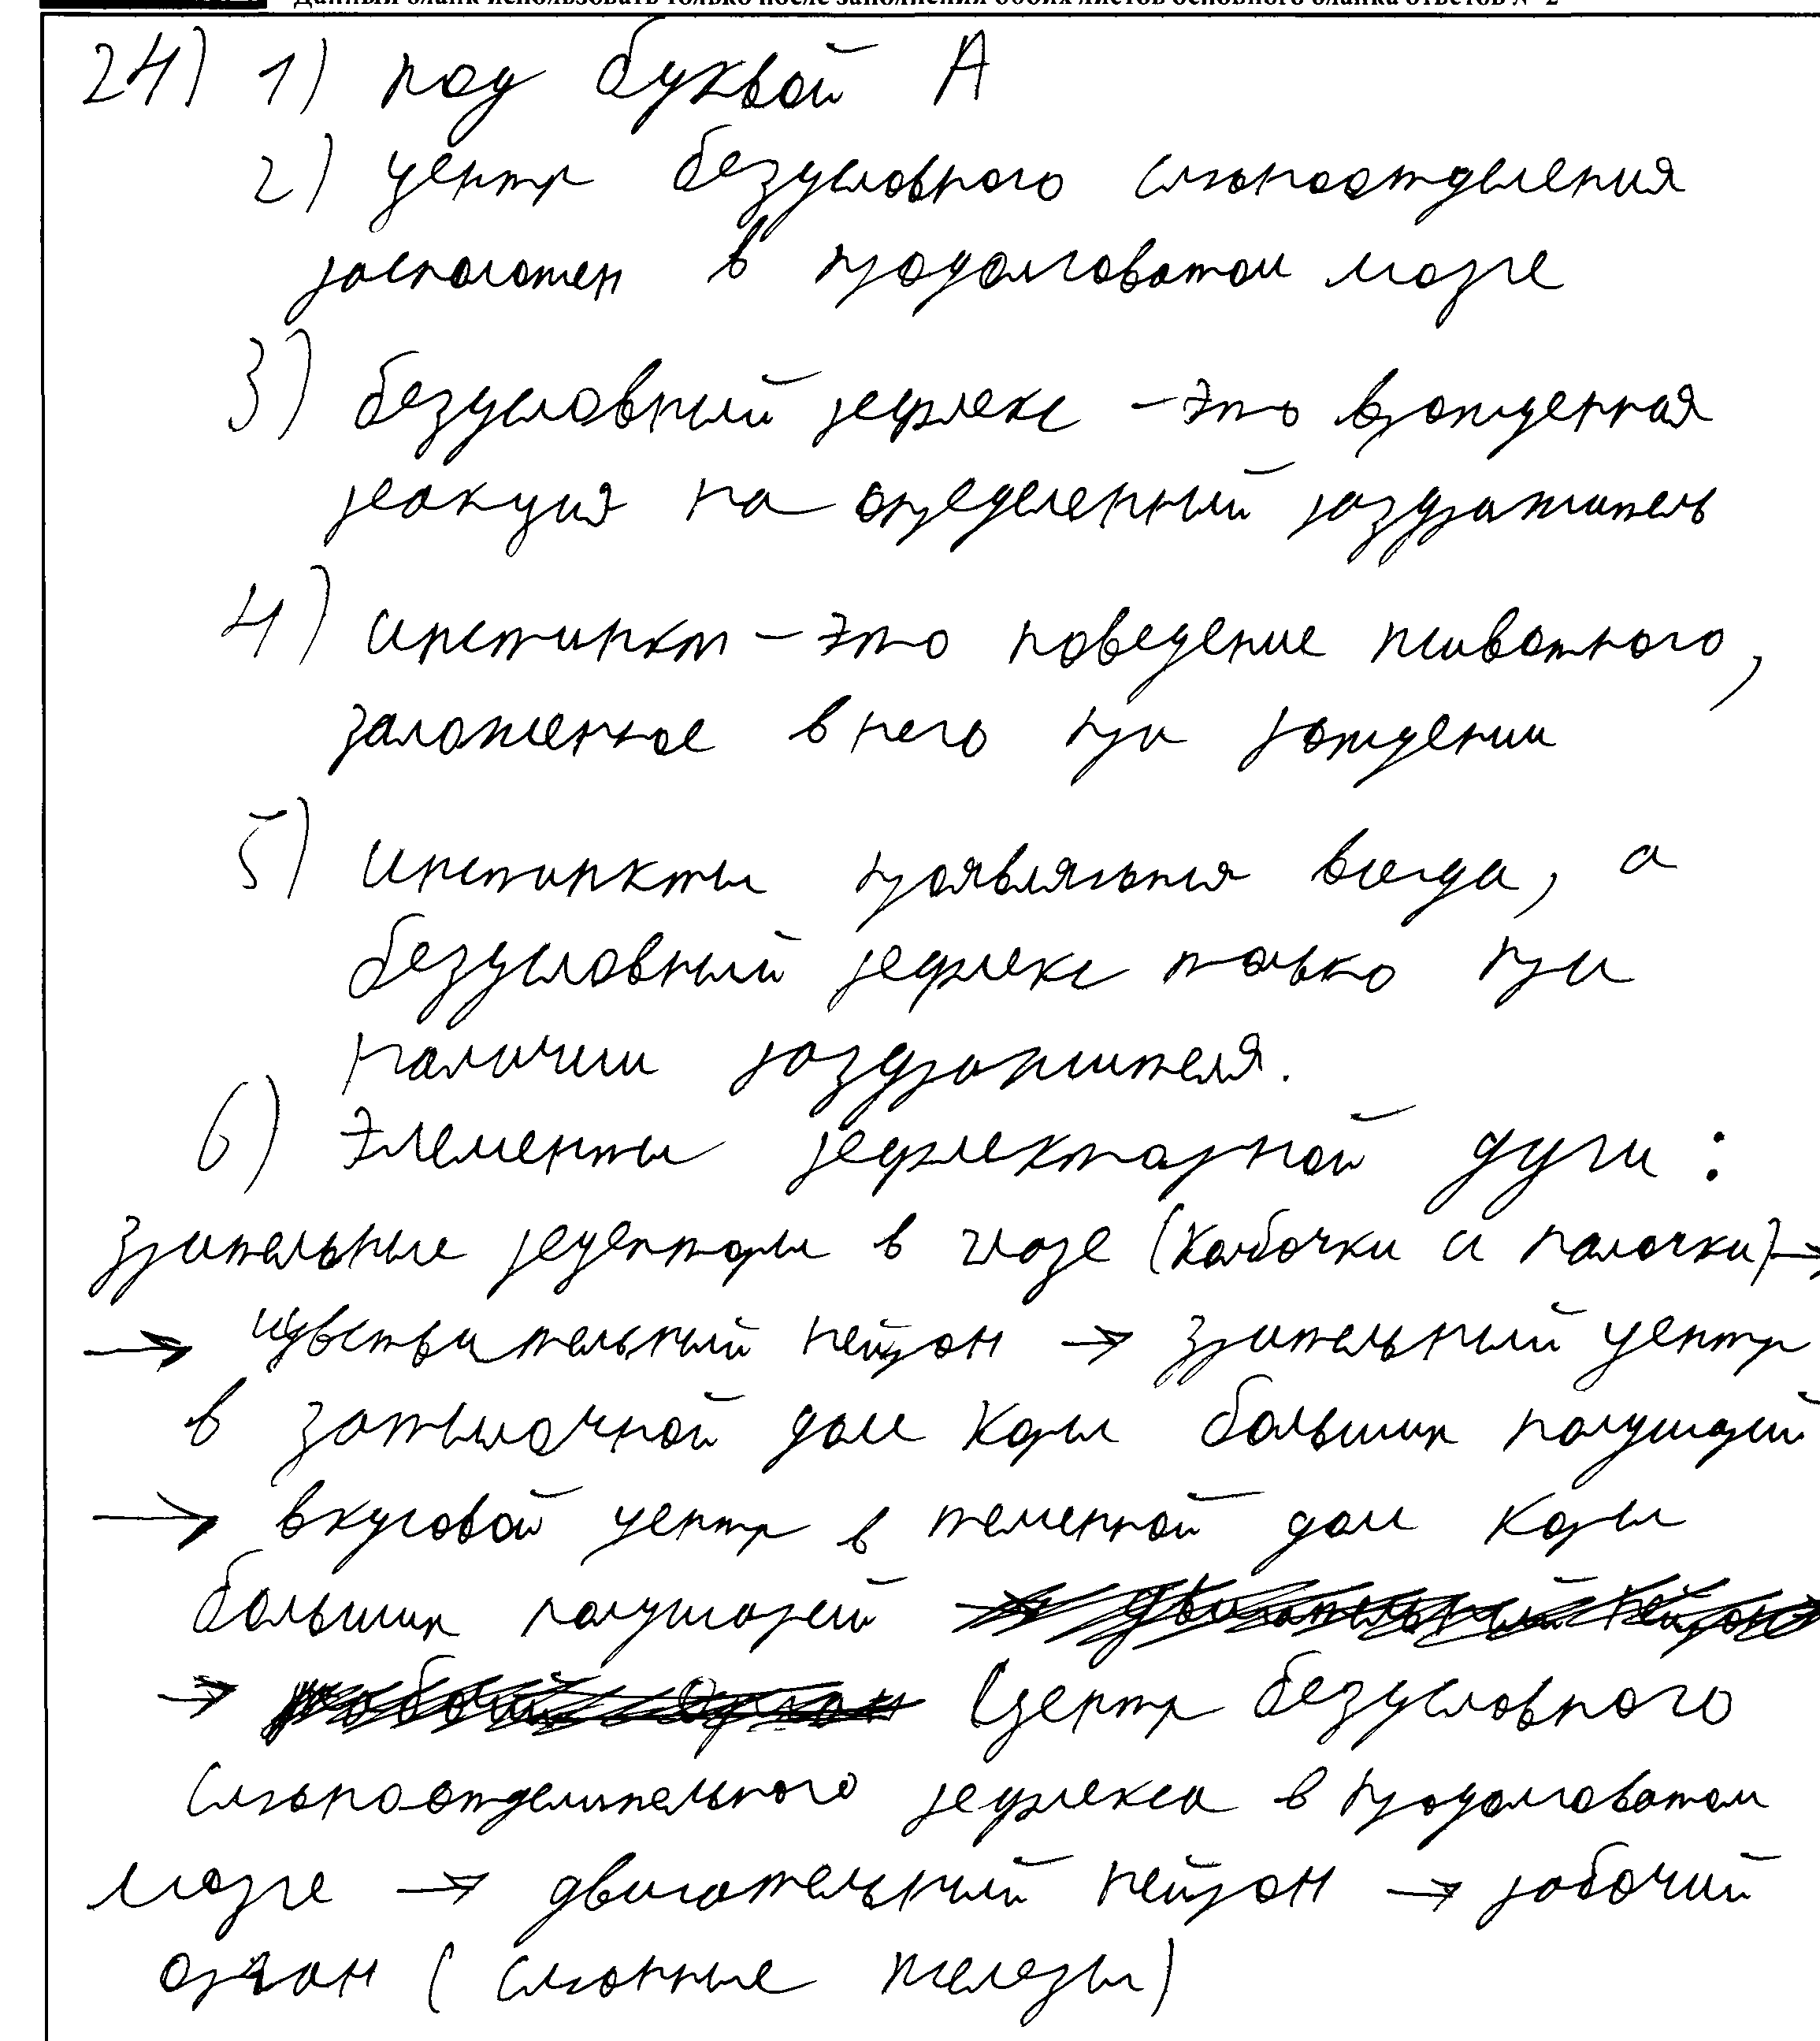 Данный бланк использовать только после заполнения обоих листов основного бланка ответов № 2
24) 1) под буквой А
2) центр безусловного слюноотделения
расположен в продолговатом мозге
3) безусловный рефлекс – это врожденная
реакция на определенный раздражитель
4) инстинкт – это поведение животного,
заложенное в него при рождении
5) инстинкты проявляются всегда, а
безусловный рефлекс только при
наличии раздражителя.
6) Элементы рефлекторной дуги:
зрительные рецепторы в глазе (колбочки и палочки) →
→ чувствительный нейрон → зрительный центр
в затылочной доле коры больших полушарий
→ вкусовой центр в теменной доле коры
больших полушарий → двигательный нейрон
→ рабочий орган Центр безусловного
слюноотделительного рефлекса в продолговатом
мозге → двигательный нейрон → рабочий
орган (слюнные железы)